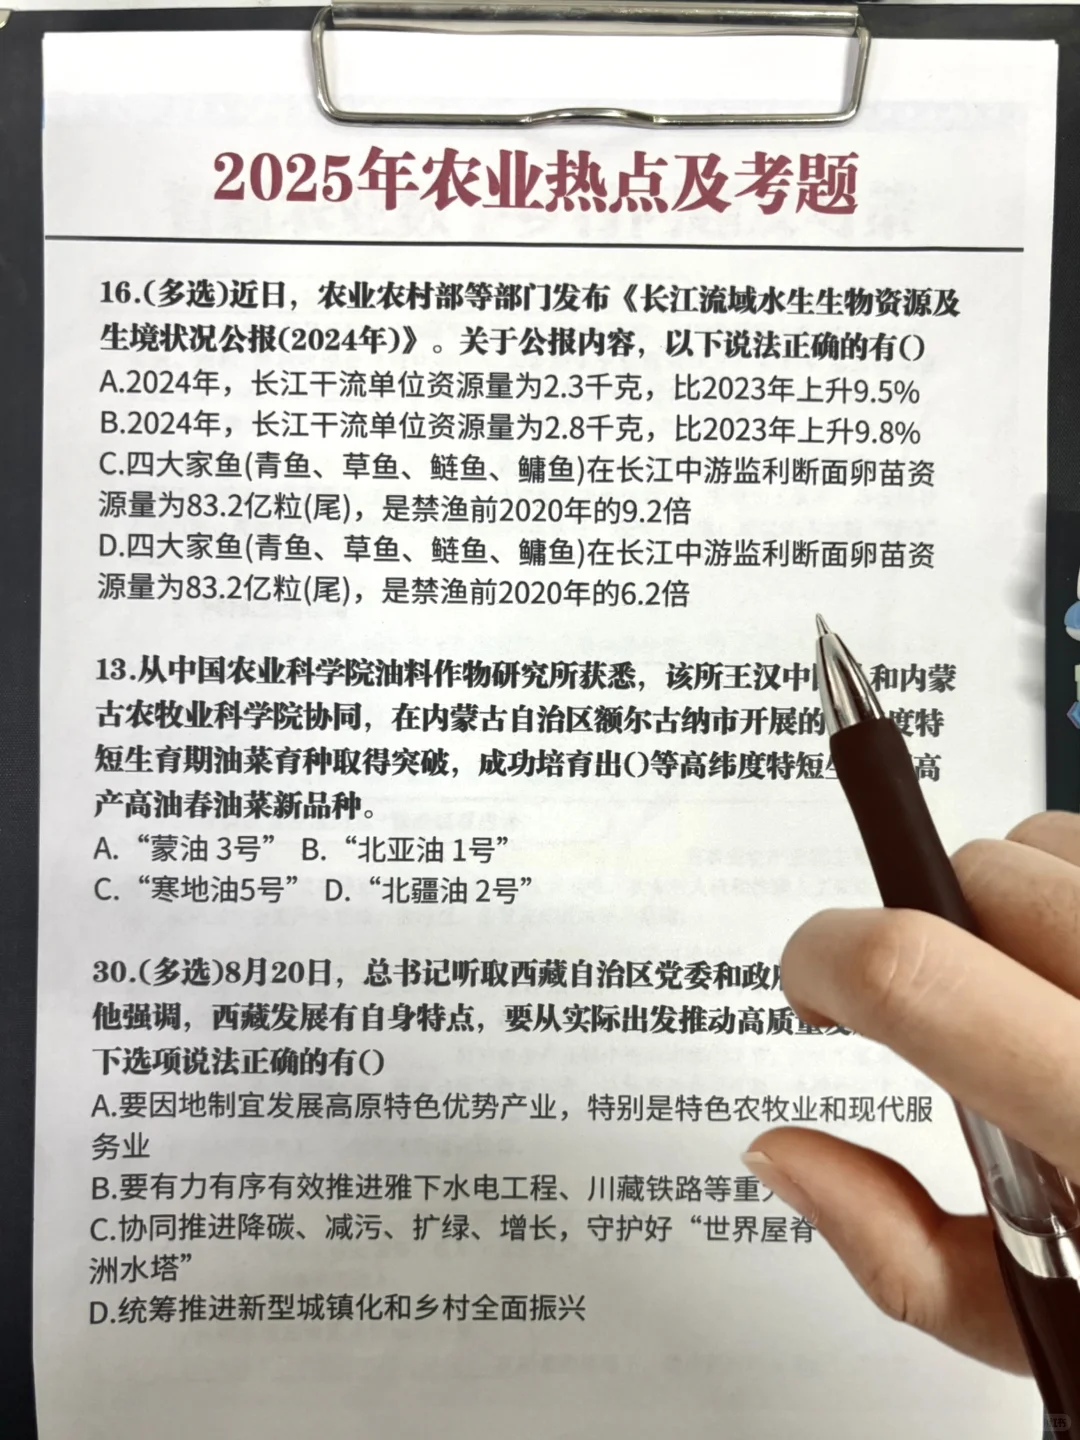 2025年农业热点及考题
16.(多选)近日，农业农村部等部门发布《长江流域水生生物资源及
生境状况公报(2024年)》。关于公报内容，以下说法正确的有()
A.2024年，长江干流单位资源量为2.3千克，比2023年上升9.5%
B.2024年，长江干流单位资源量为2.8千克，比2023年上升9.8%
C.四大家鱼(青鱼、草鱼、鲢鱼、鳙鱼)在长江中游监利断面卵苗资
源量为83.2亿粒(尾)，是禁渔前2020年的9.2倍
D.四大家鱼(青鱼、草鱼、鲢鱼、鳙鱼)在长江中游监利断面卵苗资
源量为83.2亿粒(尾)，是禁渔前2020年的6.2倍
13.从中国农业科学院油料作物研究所获悉，该所王汉中 和内蒙
古农牧业科学院协同，在内蒙古自治区额尔古纳市开展的 度特
短生育期油菜育种取得突破，成功培育出()等高纬度特短生 高
产高油春油菜新品种。
A.“蒙油 3号” B.“北亚油 1号”
C.“寒地油5号” D.“北疆油 2号”
30.(多选)8月20日，总书记听取西藏自治区党委和政
他强调，西藏发展有自身特点，要从实际出发推动高质量
下选项说法正确的有()
A.要因地制宜发展高原特色优势产业，特别是特色农牧业和现代服
务业
B.要有力有序有效推进雅下水电工程、川藏铁路等重
C.协同推进降碳、减污、扩绿、增长，守护好“世界屋脊
洲水塔”
D.统筹推进新型城镇化和乡村全面振兴